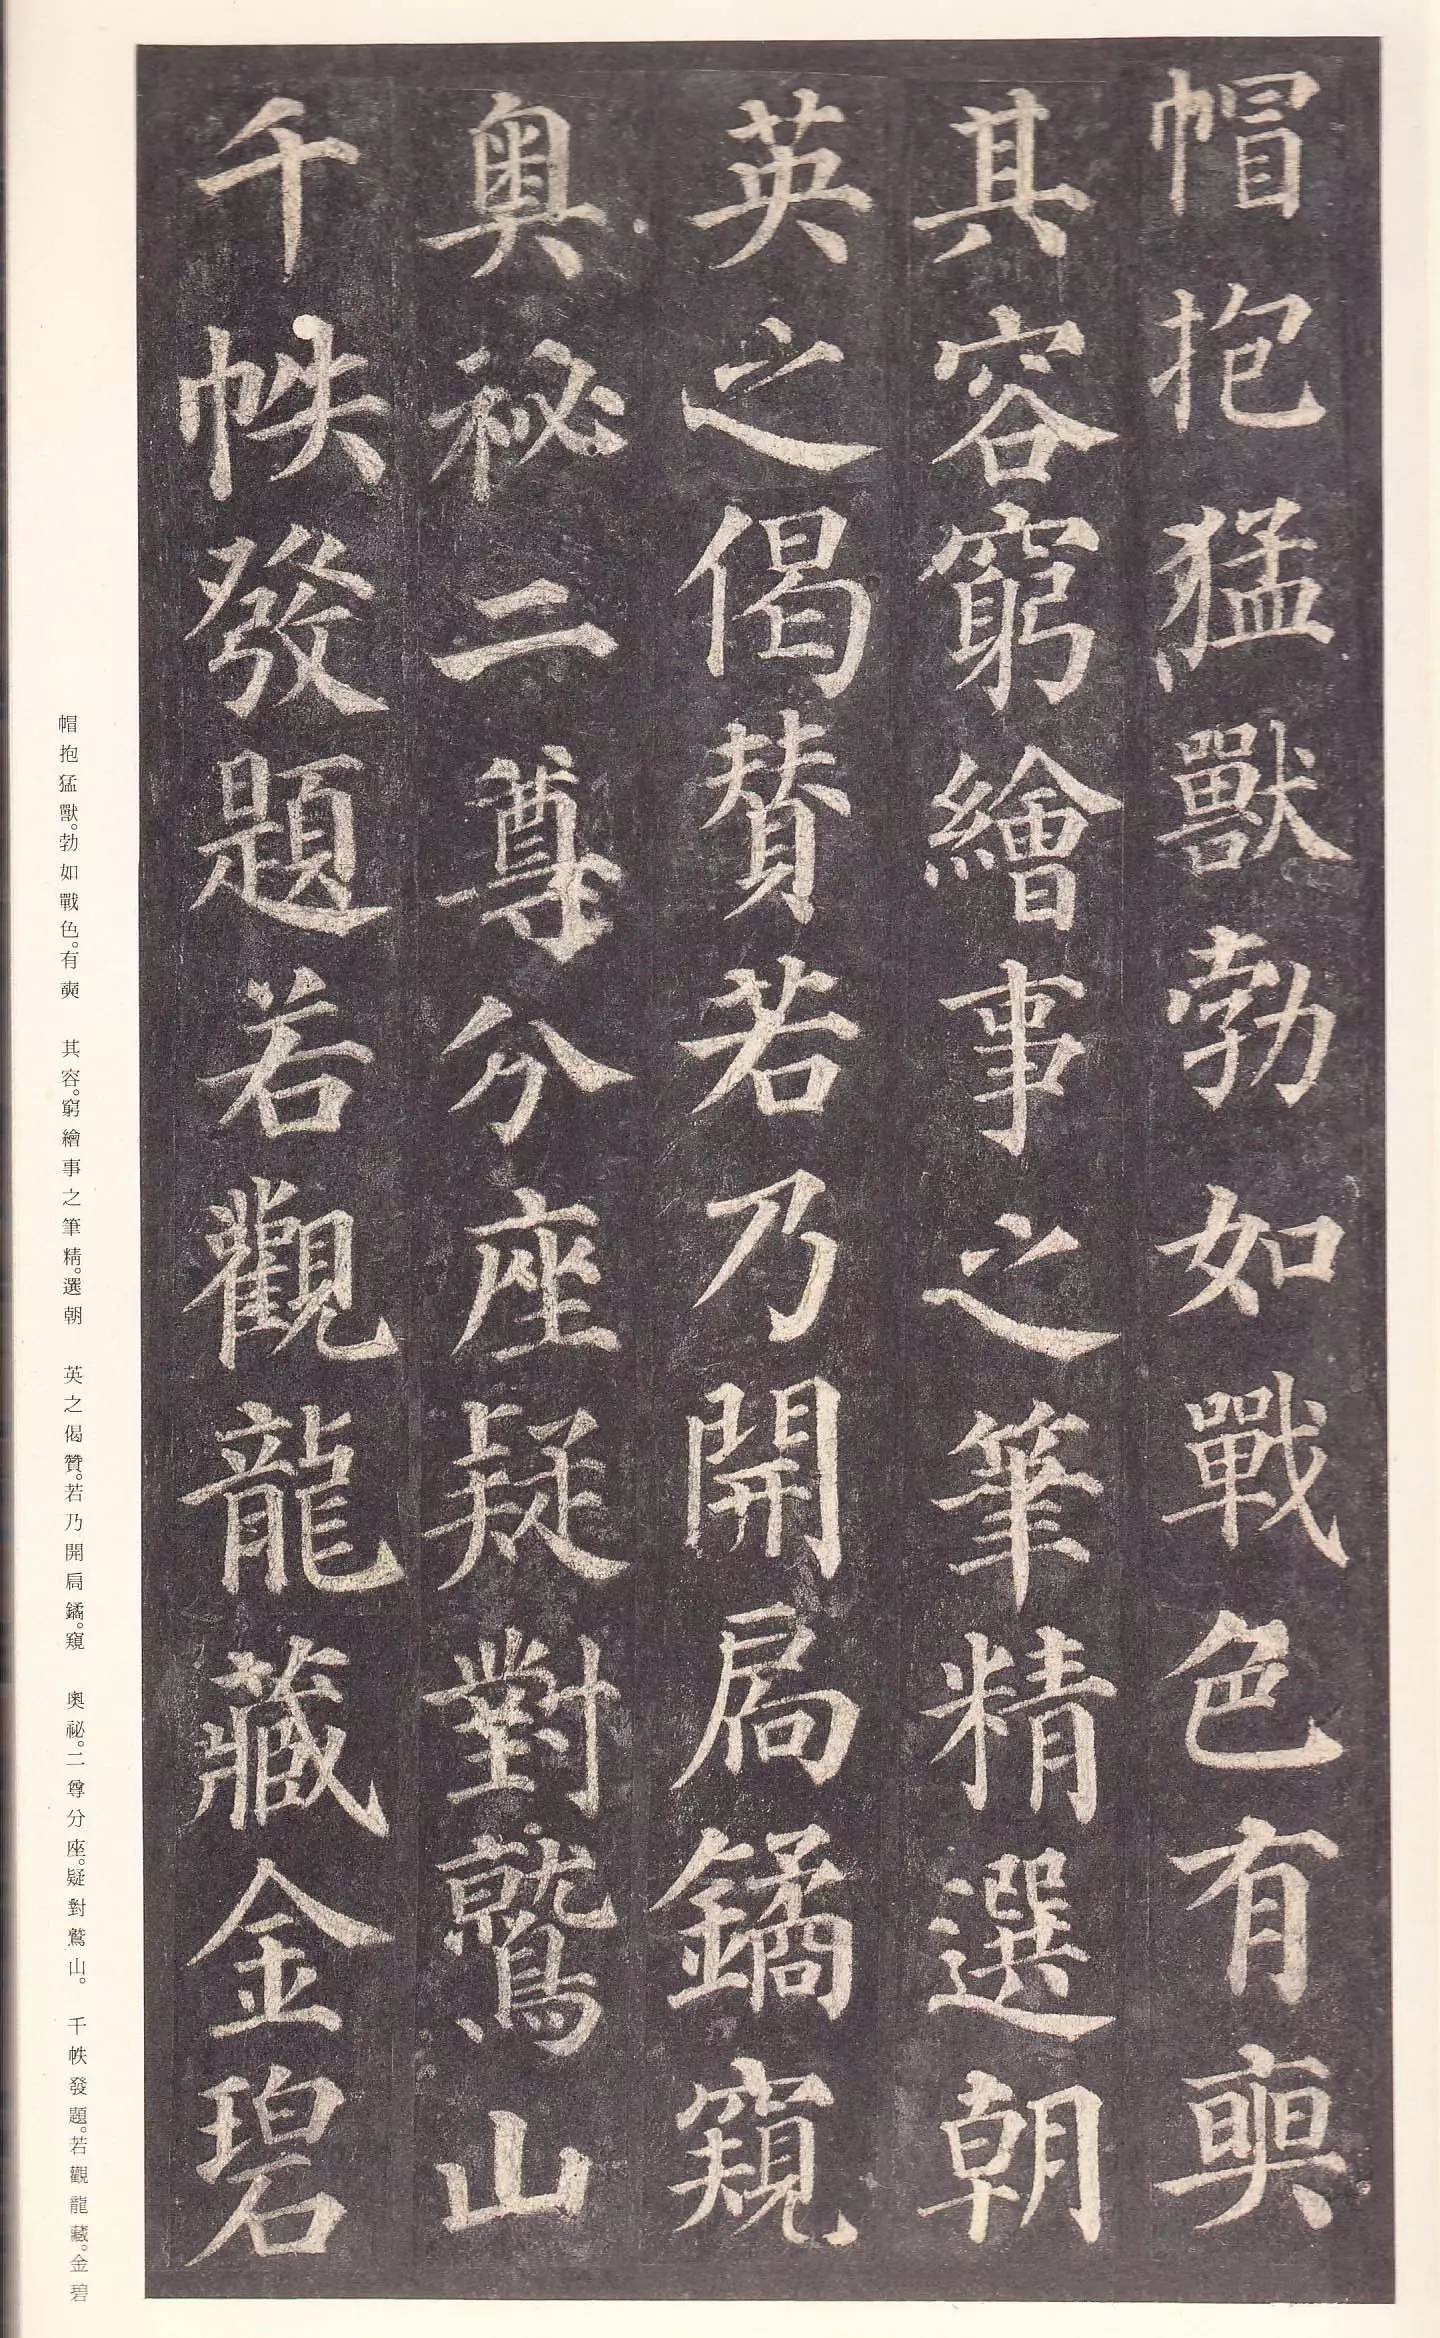 帽抱猛獸勃如戰色有奭
其容窮繪事之筆精選朝
英之偈賛若乃開扃鐍窺
奥祕二尊分座疑對鷲山
千帙發題若觀龍藏金碧
帽抱猛獸。勃如戰色。有奭 其容。窮繪事之筆精。選朝 英之偈贊。若乃開扃鐍。窺 奧祕。二尊分座。疑對鷲山。 千帙發題。若觀龍藏。金碧